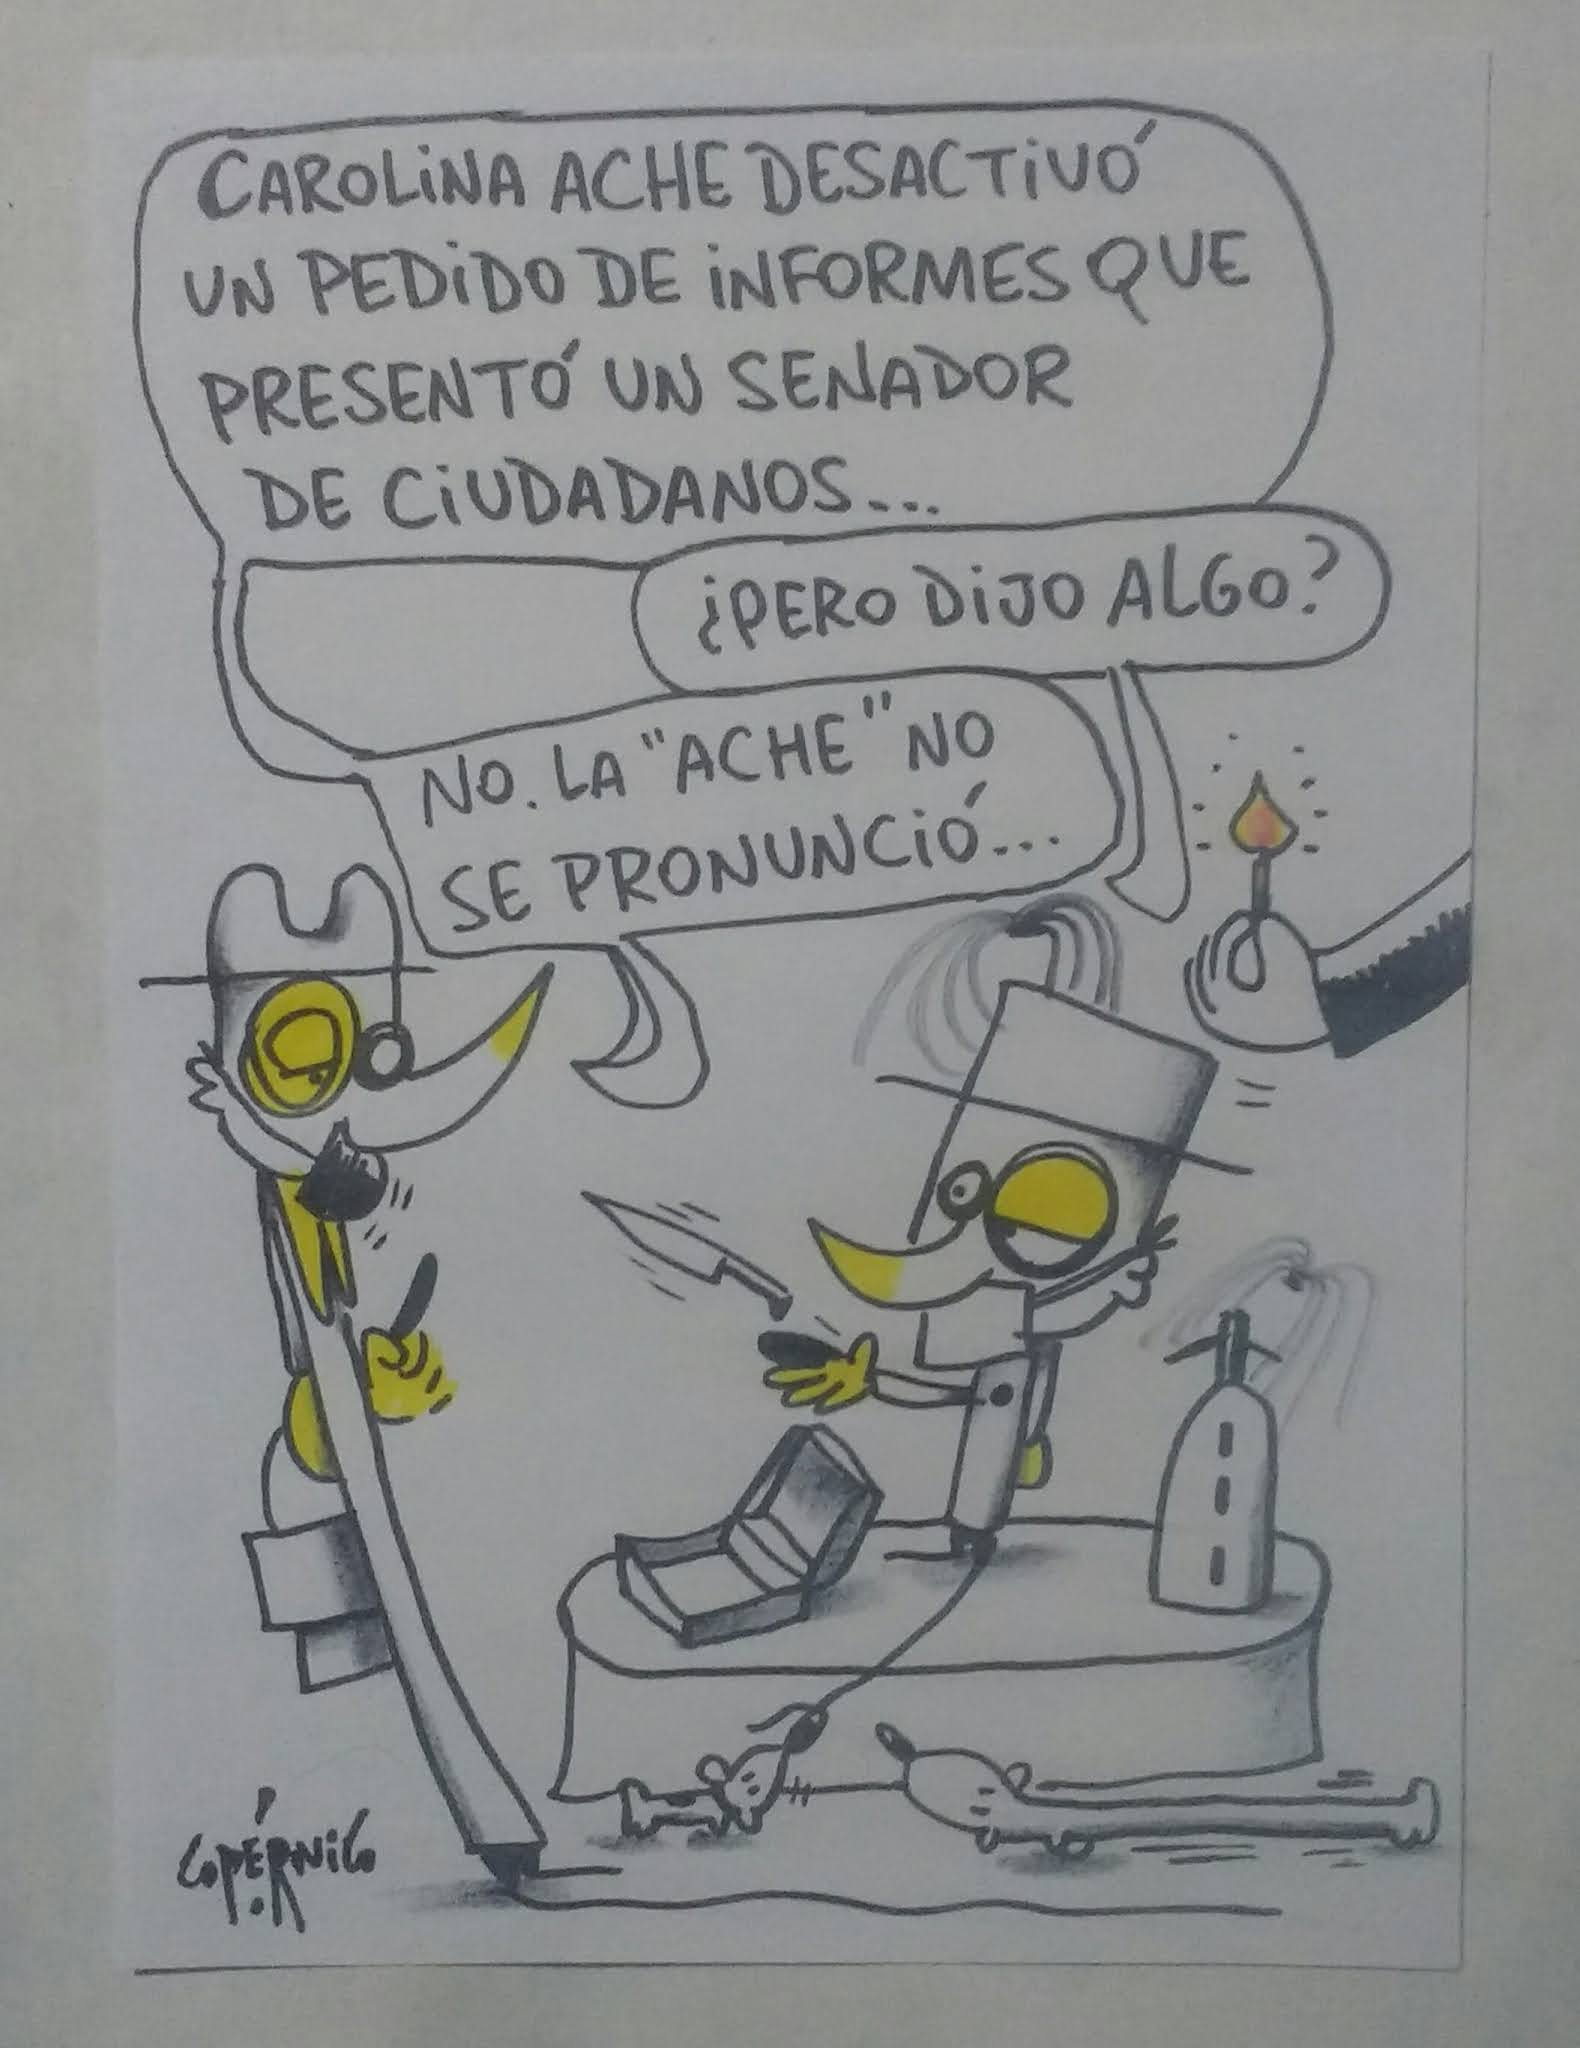 CAROLINA ACHE DESACTIVÓ
UN PEDIDO DE INFORMES QUE
PRESENTÓ UN SENADOR
DE CIUDADANOS...
¿PERO DIJO ALGO?
NO. LA "ACHE" NO
SE PRONUNCIÓ...
COPÉRNICO